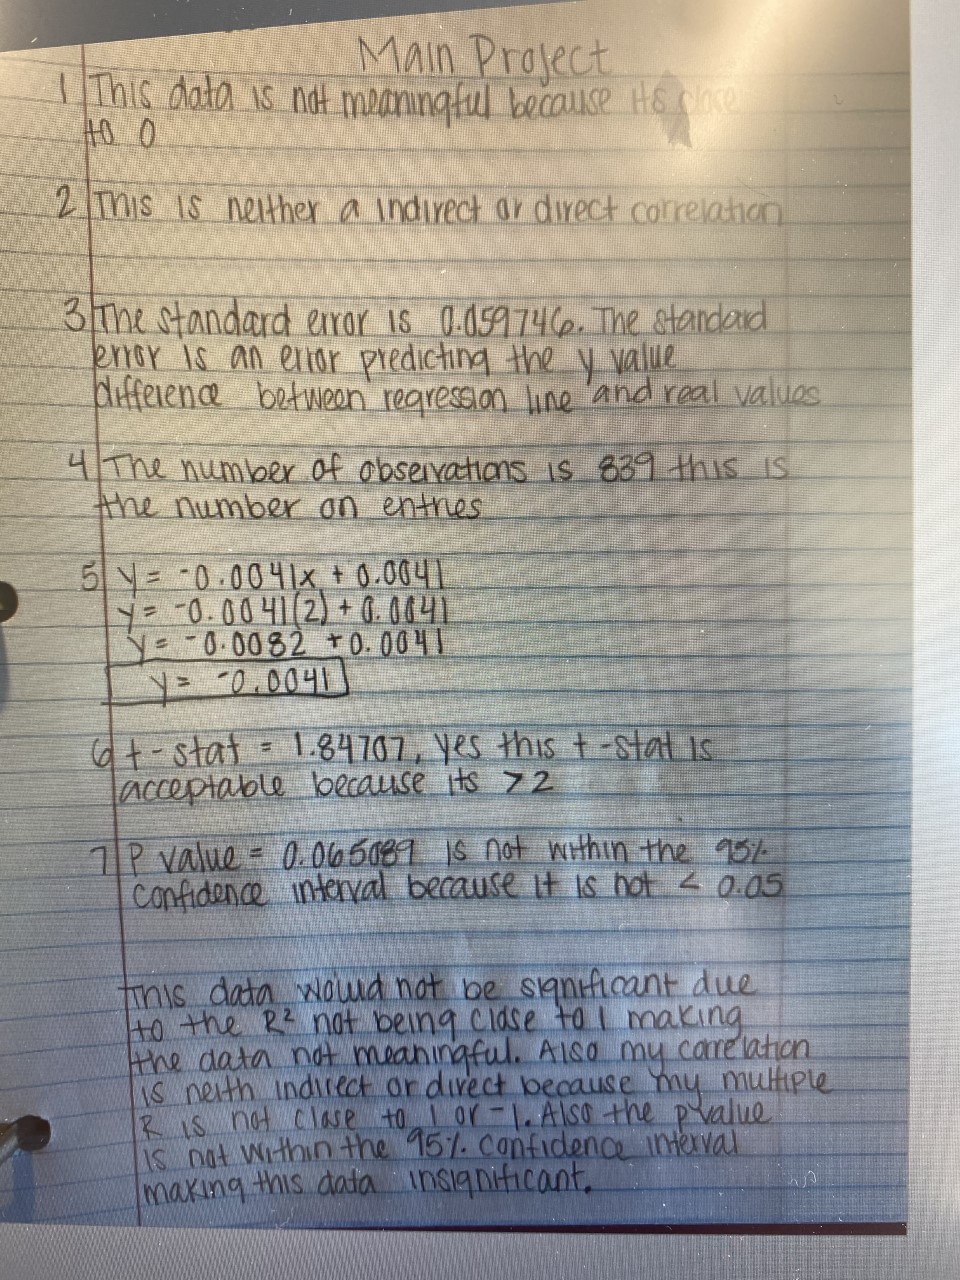 Main Project
1 This data is not meaningful because its close
to 0
2 This is neither a indirect or direct correlation
3 The standard error is 0.059746. The standard
error is an error predicting the y value
difference between regression line and real values
4 The number of observations is 839 this is
the number on entries
5 y = -0.0041x + 0.0041
y = -0.0041(2) + 0.0041
y = -0.0082 + 0.0041
y = -0.0041
6 t-stat = 1.84707, yes this t-stat is
acceptable because its >2
7 P value = 0.065089 is not within the 95%
confidence interval because it is not < 0.05
This data would not be significant due
to the R² not being close to 1 making
the data not meaningful. Also my correlation
is neith indirect or direct because my multiple
R is not close to 1 or -1. Also the pvalue
is not within the 95% confidence interval
making this data insignificant.